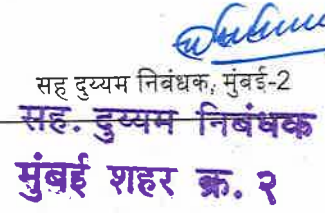 सह दुय्यम निबंधक, मुंबई-2
सह. दुय्यम निबंधक
मुंबई शहर क्र. २